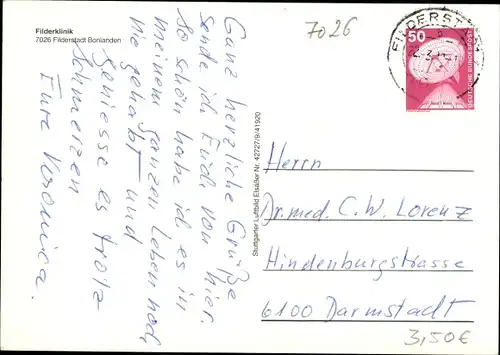 Filderklinik
7026 Filderstadt Bonlanden
7026
FILDERSTADT
50
DEUTSCHE BUNDESPOST
Ganz herzliche Grüße
sende ich Euch von hier.
So schön habe ich es in
meinem ganzen Leben noch
nie gehabt und
geniesse es trotz
Schmerzen
Eure Veronica.
Stuttgarter Luftbild Elsäßer Nr. 42727/9/41920
Herrn
Dr. med. C. W. Lorenz
Hindenburgstrasse
6100 Darmstadt
3,50€